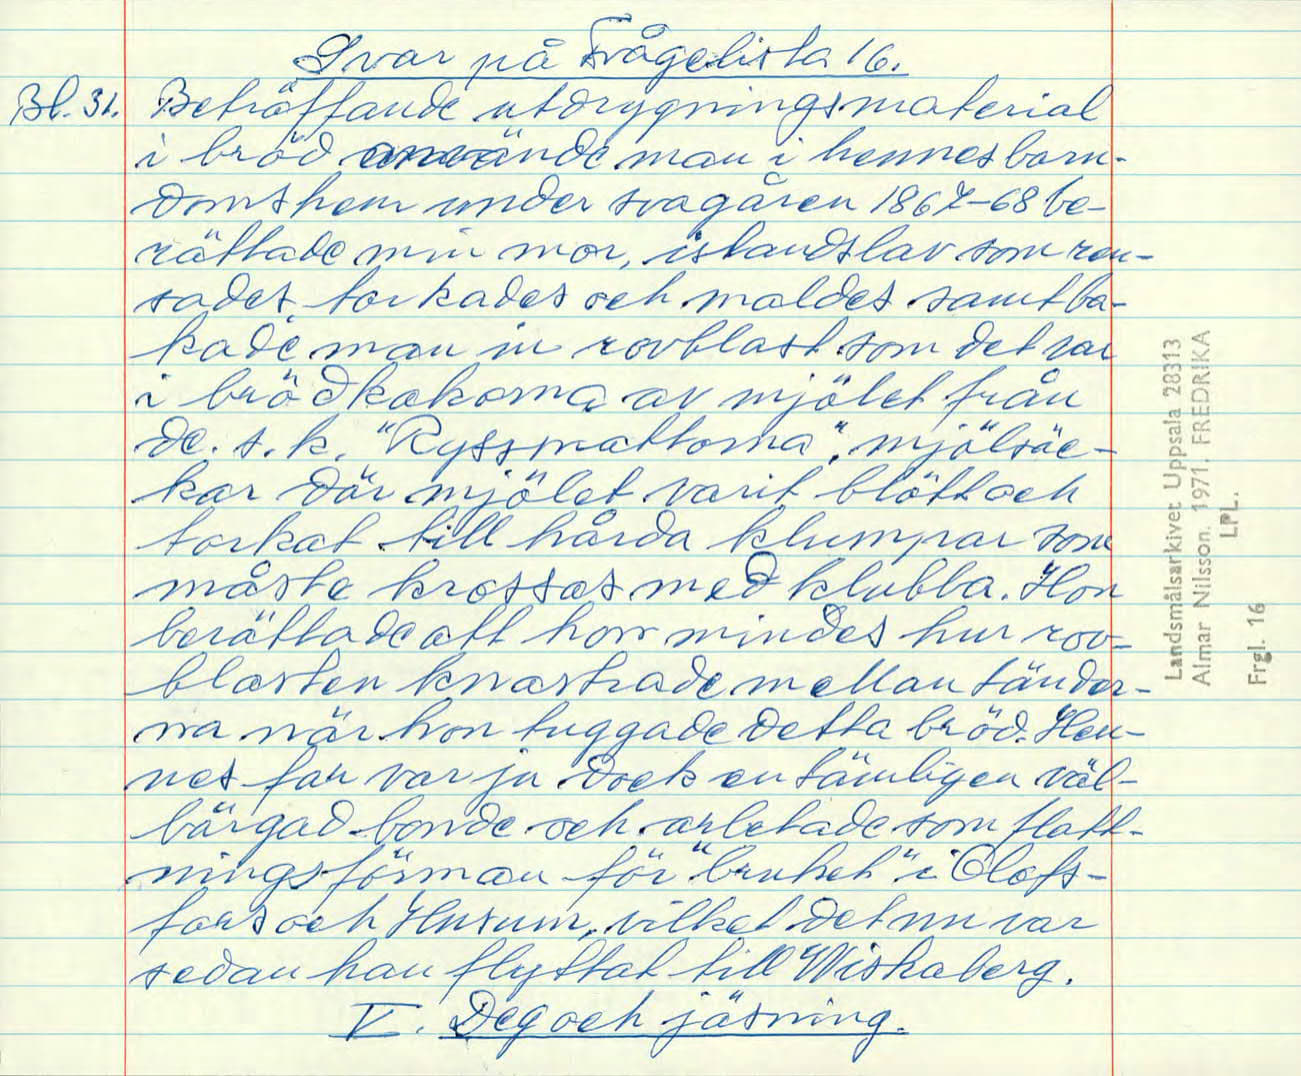 Svar på Frågelista 16.
Bl. 31. Beträffande utdrygningsmaterial
i bröd använde man i hennes barn-
domshem under svagåren 1867-68 be-
rättade min mor, islandslav som ren-
sades, torkades och maldes samt ba-
kade man in rovblast som det var
i brödkakorna av mjölet från
de. s. k. "Ryssmattorna", mjölsäc-
kar där mjölet varit blött och
torkat till hårda klumpar som
måste krossas med klubba. Hon
berättade att hon mindes hur rov-
blasten knastrade mellan tänder-
na när hon tuggade detta bröd. Hen-
nes far var ju dock en tämligen väl-
bärgad bonde och arbetade som flott-
ningsförman för "bruket" i Olofs-
fors och Husum, vilket det nu var
sedan han flyttat till Wiskaberg.
V. Deg och jäsning.
Landsmålsarkivet Uppsala 28313
Almar Nilsson. 1971. FREDRIKA
LPL.
Frgl. 16